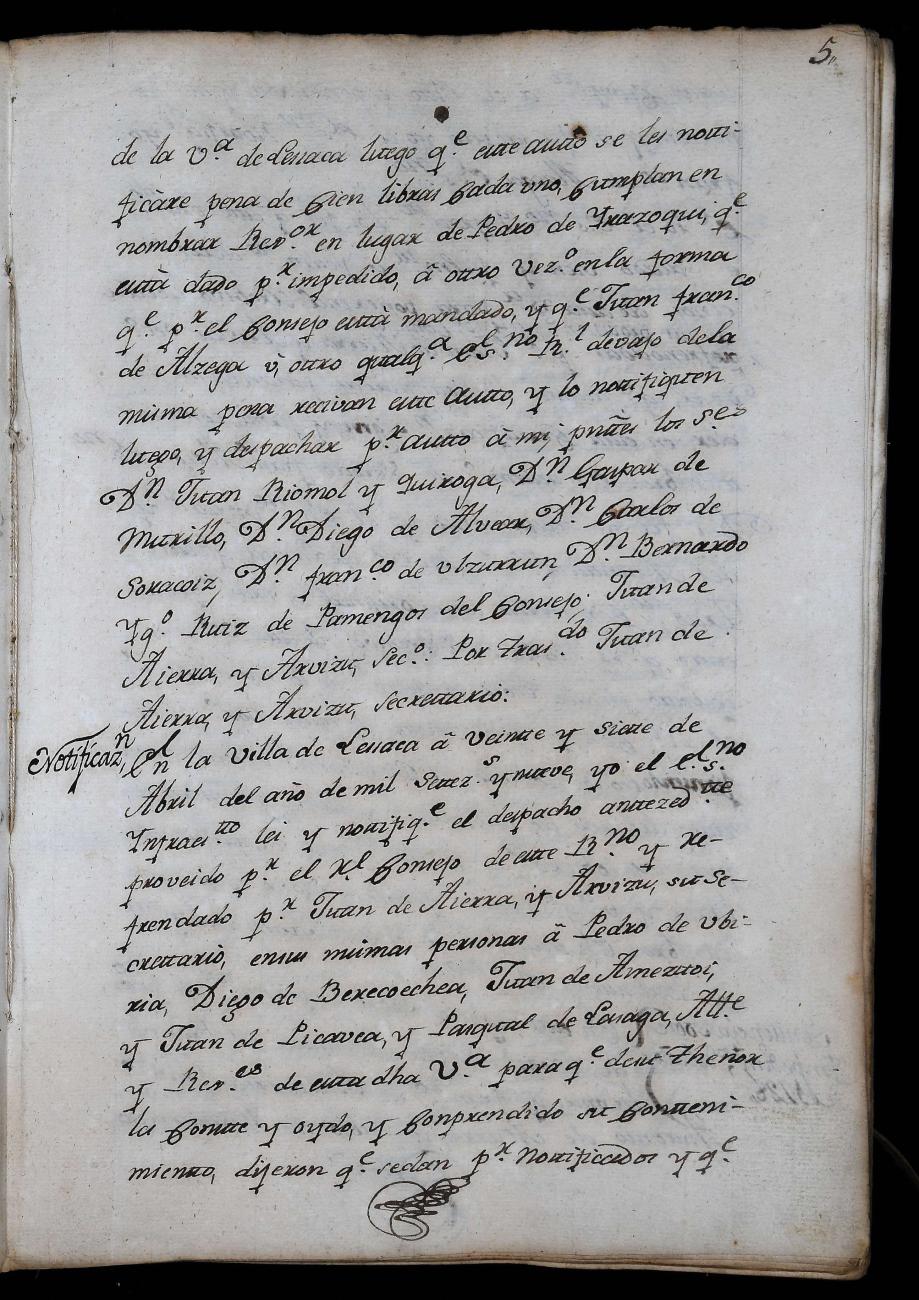 5.
de la V.ª de Lesaca luego q.e este autto se les notti-
ficàre pena de Cien libras Cada uno, Cumplan en
nombrar Rer.or en lugar de Pedro de Yrazoqui, q.e
està dado p.r impedido, â ottro Vez.o en la forma
q.e p.r el Consejo està mandado, y q.e Juan fran.co
de Alzega ù, ottro qualq.a es.no R.l devajo de la
misma pena recivan este Autto, y lo nottifiquen
luego, y despachar p.r autto â mi; pnttes los S.es
D.n Juan Riomol y Quiroga, D.n Gaspar de
Murillo, D.n Diego de Alvear, D.n Carlos de
Soracoiz, D.n fran.co de Ulzurrun, D.n Bernardo
Yg.o Ruiz de Pamengos del Consejo; Juan de
Aierra, y Arvizu, Sec.o: Por tras.do Juan de
Aierra, y Arvizu, Secrettario:
Notificaz.n, En la Villa de Lesaca â Veinte y Siete de
Abril del año de mil Settez.s y nueve, yo el es.no
Ynfraes.tto lei y nottifiq.e el despacho anttezed.tte
proveido p.r el R.l Consejo de este R.no y re-
frendado p.r Juan de Aierra, y Arvizu, su Se-
crettariò, en sus mismas personas â Pedro de Ubi-
ria, Diego de Berecoechea, Juan de Amezttoi,
y Juan de Picavea, y Pasqual de Lasaga, Alt.e
y Rer.es de esta dha V.ª para q.e de su thenor
les Conste y oydo, y Conprendido su Conteni-
miento, dijeron q.e se dan p.r Nottificados y q.e